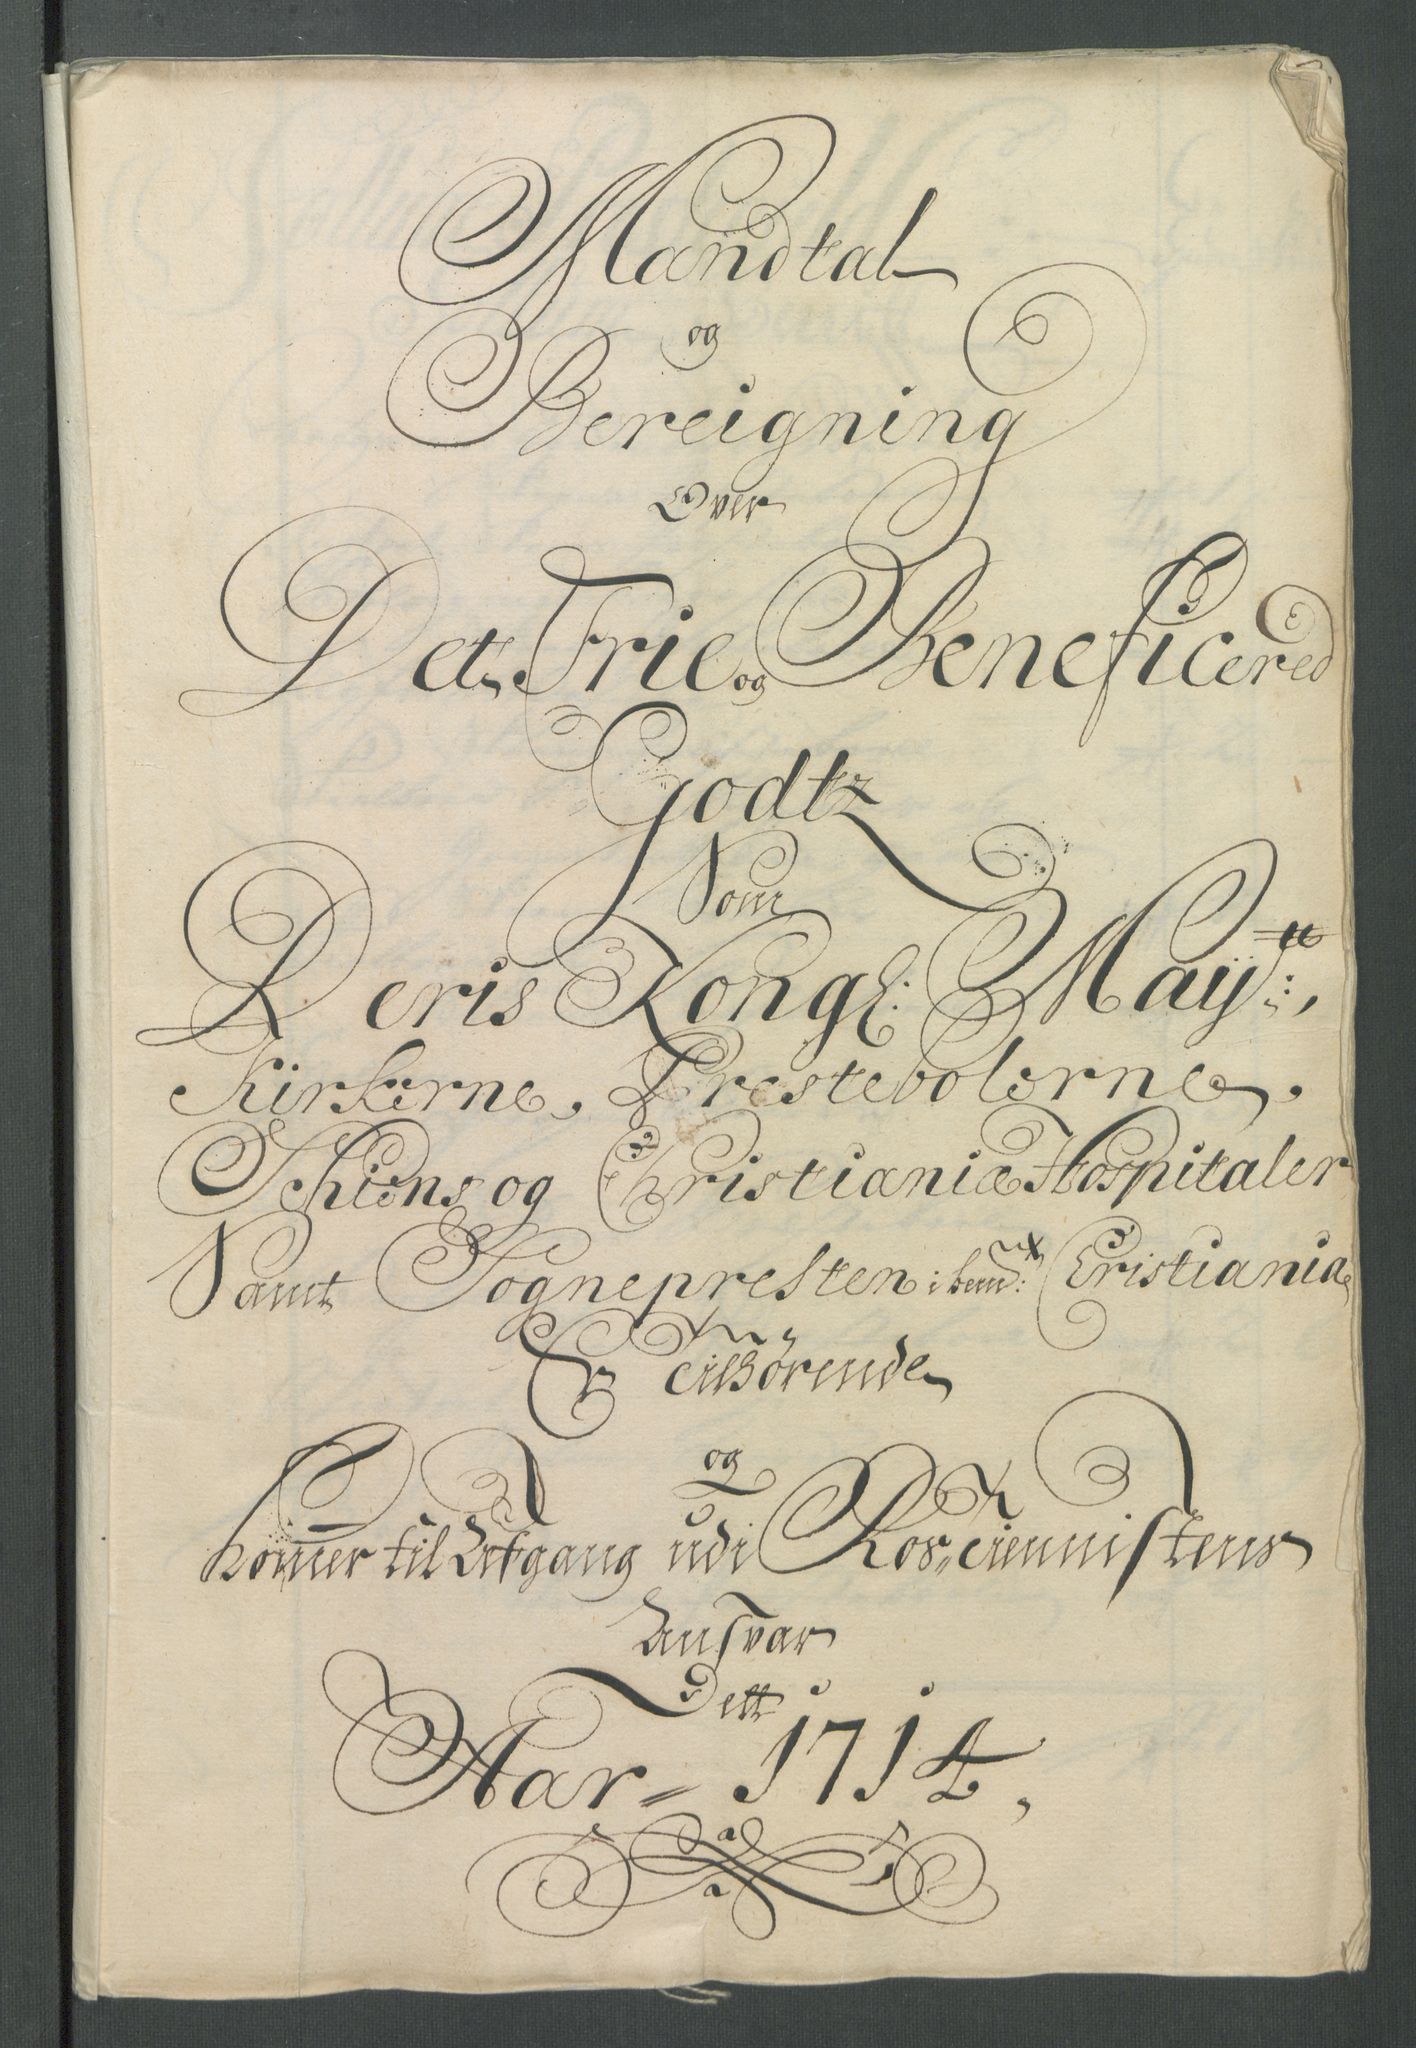 Mandtal
og
Bereigning
Over
Det Frie og Beneficered
Godtz
Som
Deris Kongl: Maytt:,
Kirkerne, Prestebolerne,
Schiens og Christianiæ Hospitaler
Samt Sognepresten i bem: Cristiania
Er tilhørende
og
komer til Afgang udi Ros-tiennistens
Ansvar
Dett
Aar 1714,